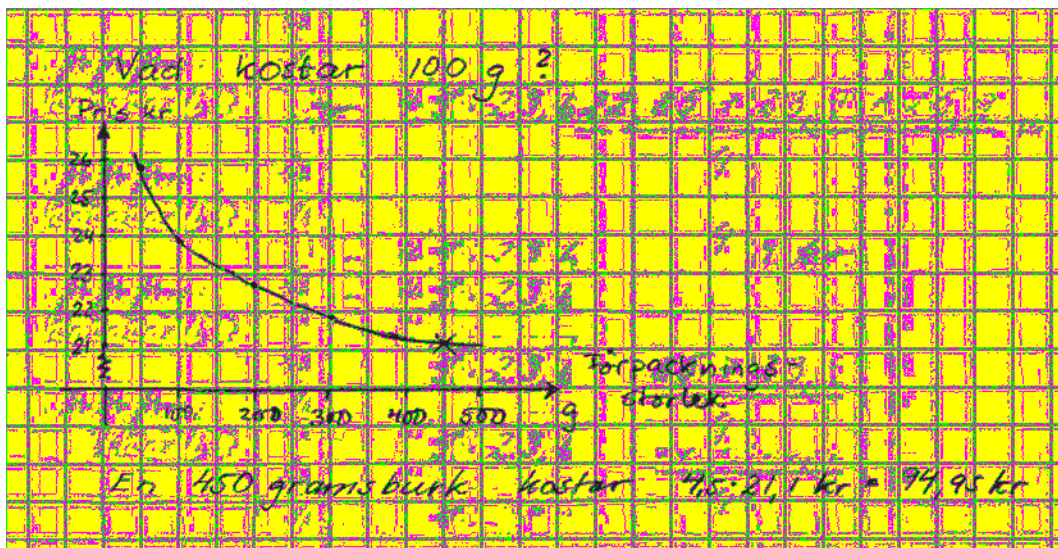 Vad kostar 100 g?
Pris kr
26
25
24
23
22
21
100 200 300 400 500 g
Förpacknings-
storlek
En 450 gramsburk kostar 4,5·21,1 kr = 94,95 kr